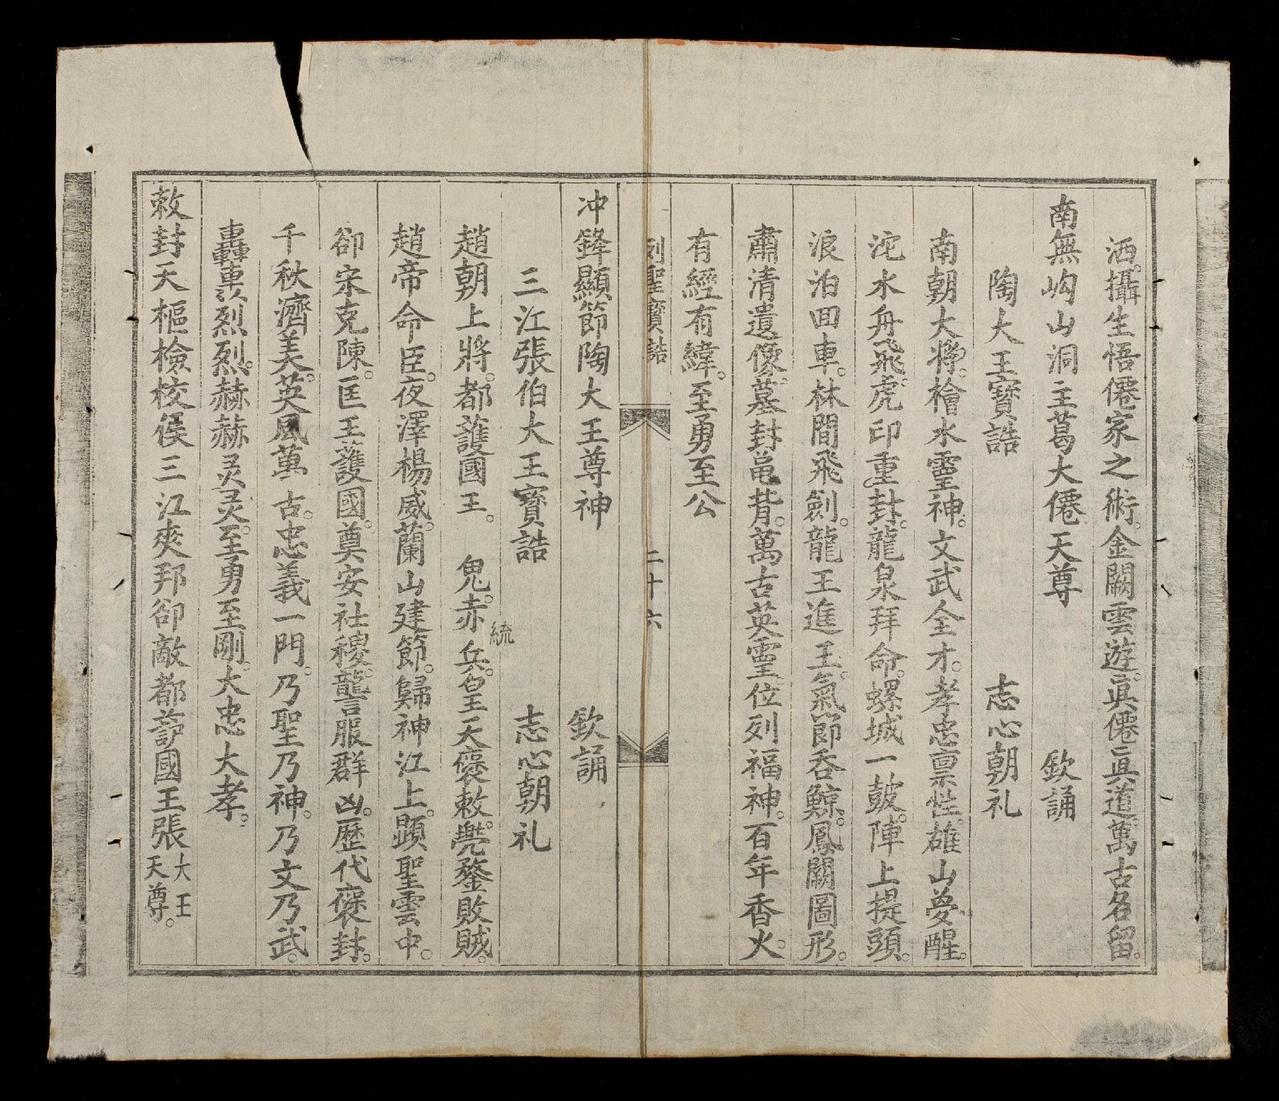 洒。攝生悟僊家之術。金闕雲遊。真僊真道。萬古名留。
南無岣山洞主葛大僊天尊 欽誦
陶大王寶誥 志心朝礼
南朝大將。檜水靈神。文武全才。孝忠禀性。雄山夢醒。
沱水舟飛。虎印重封。龍泉拜命。螺城一鼓。陣上提頭。
浪泊回車。林間飛劍。龍王進王。氣節吞鯨。鳳闕圖形。
肅清遺像。墓封黽背。萬古英靈。位列福神。百年香火。
有經有緯。至勇至公
列聖寶誥 二十六
冲鋒顯節陶大王尊神 欽誦
三江張伯大王寶誥 志心朝礼
趙朝上將。都護國王。 鬼。赤兵。皇天褒敕。鏖敗賊。
統
趙帝命臣。夜澤楊威。蘭山建節。歸神江上。顕聖雲中。
卻宋克陳。匡王護國。奠安社稷。讋服群凶。歷代褒封。
千秋濟美。英風萬古。忠義一門。乃聖乃神。乃文乃武。
轟轟烈烈。赫赫灵灵。至勇至剛。大忠大孝。
敕封天樞檢校侯三江夾邦卻敵都護國王張大王天尊。